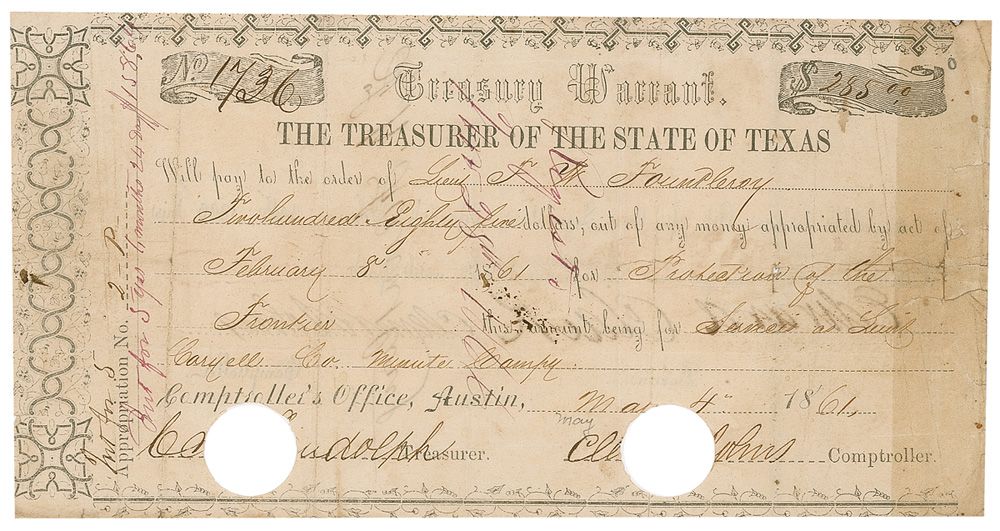 No. 1736 Treasury Warrant. $ 285 00
THE TREASURER OF THE STATE OF TEXAS
Will pay to the order of Lieut F W Fountleroy
Two hundred Eighty five dollars, out of any money appropriated by act of
February 8 1861 for Protection of the
Frontier this amount being for Services as Lieut
Coryell Co. Minute Compy.
Comptroller's Office, Austin, May 4th 1861
May
Randolph Treasurer. Johns Comptroller.
Appropriation No. 2
Int for 5
Int for 3 yrs